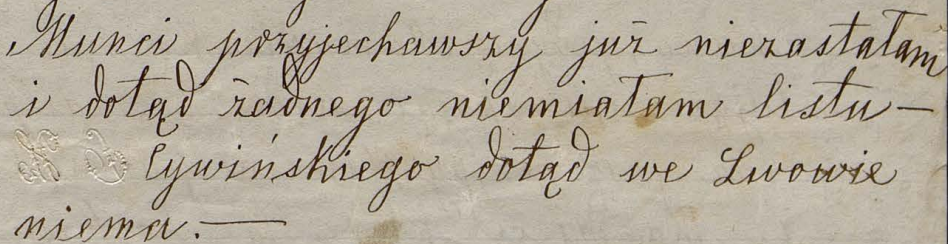 Munci przyjechawszy już niezastałam
i dotąd żadnego niemiałam listu —
Cywińskiego dotąd we Lwowie
niema. —